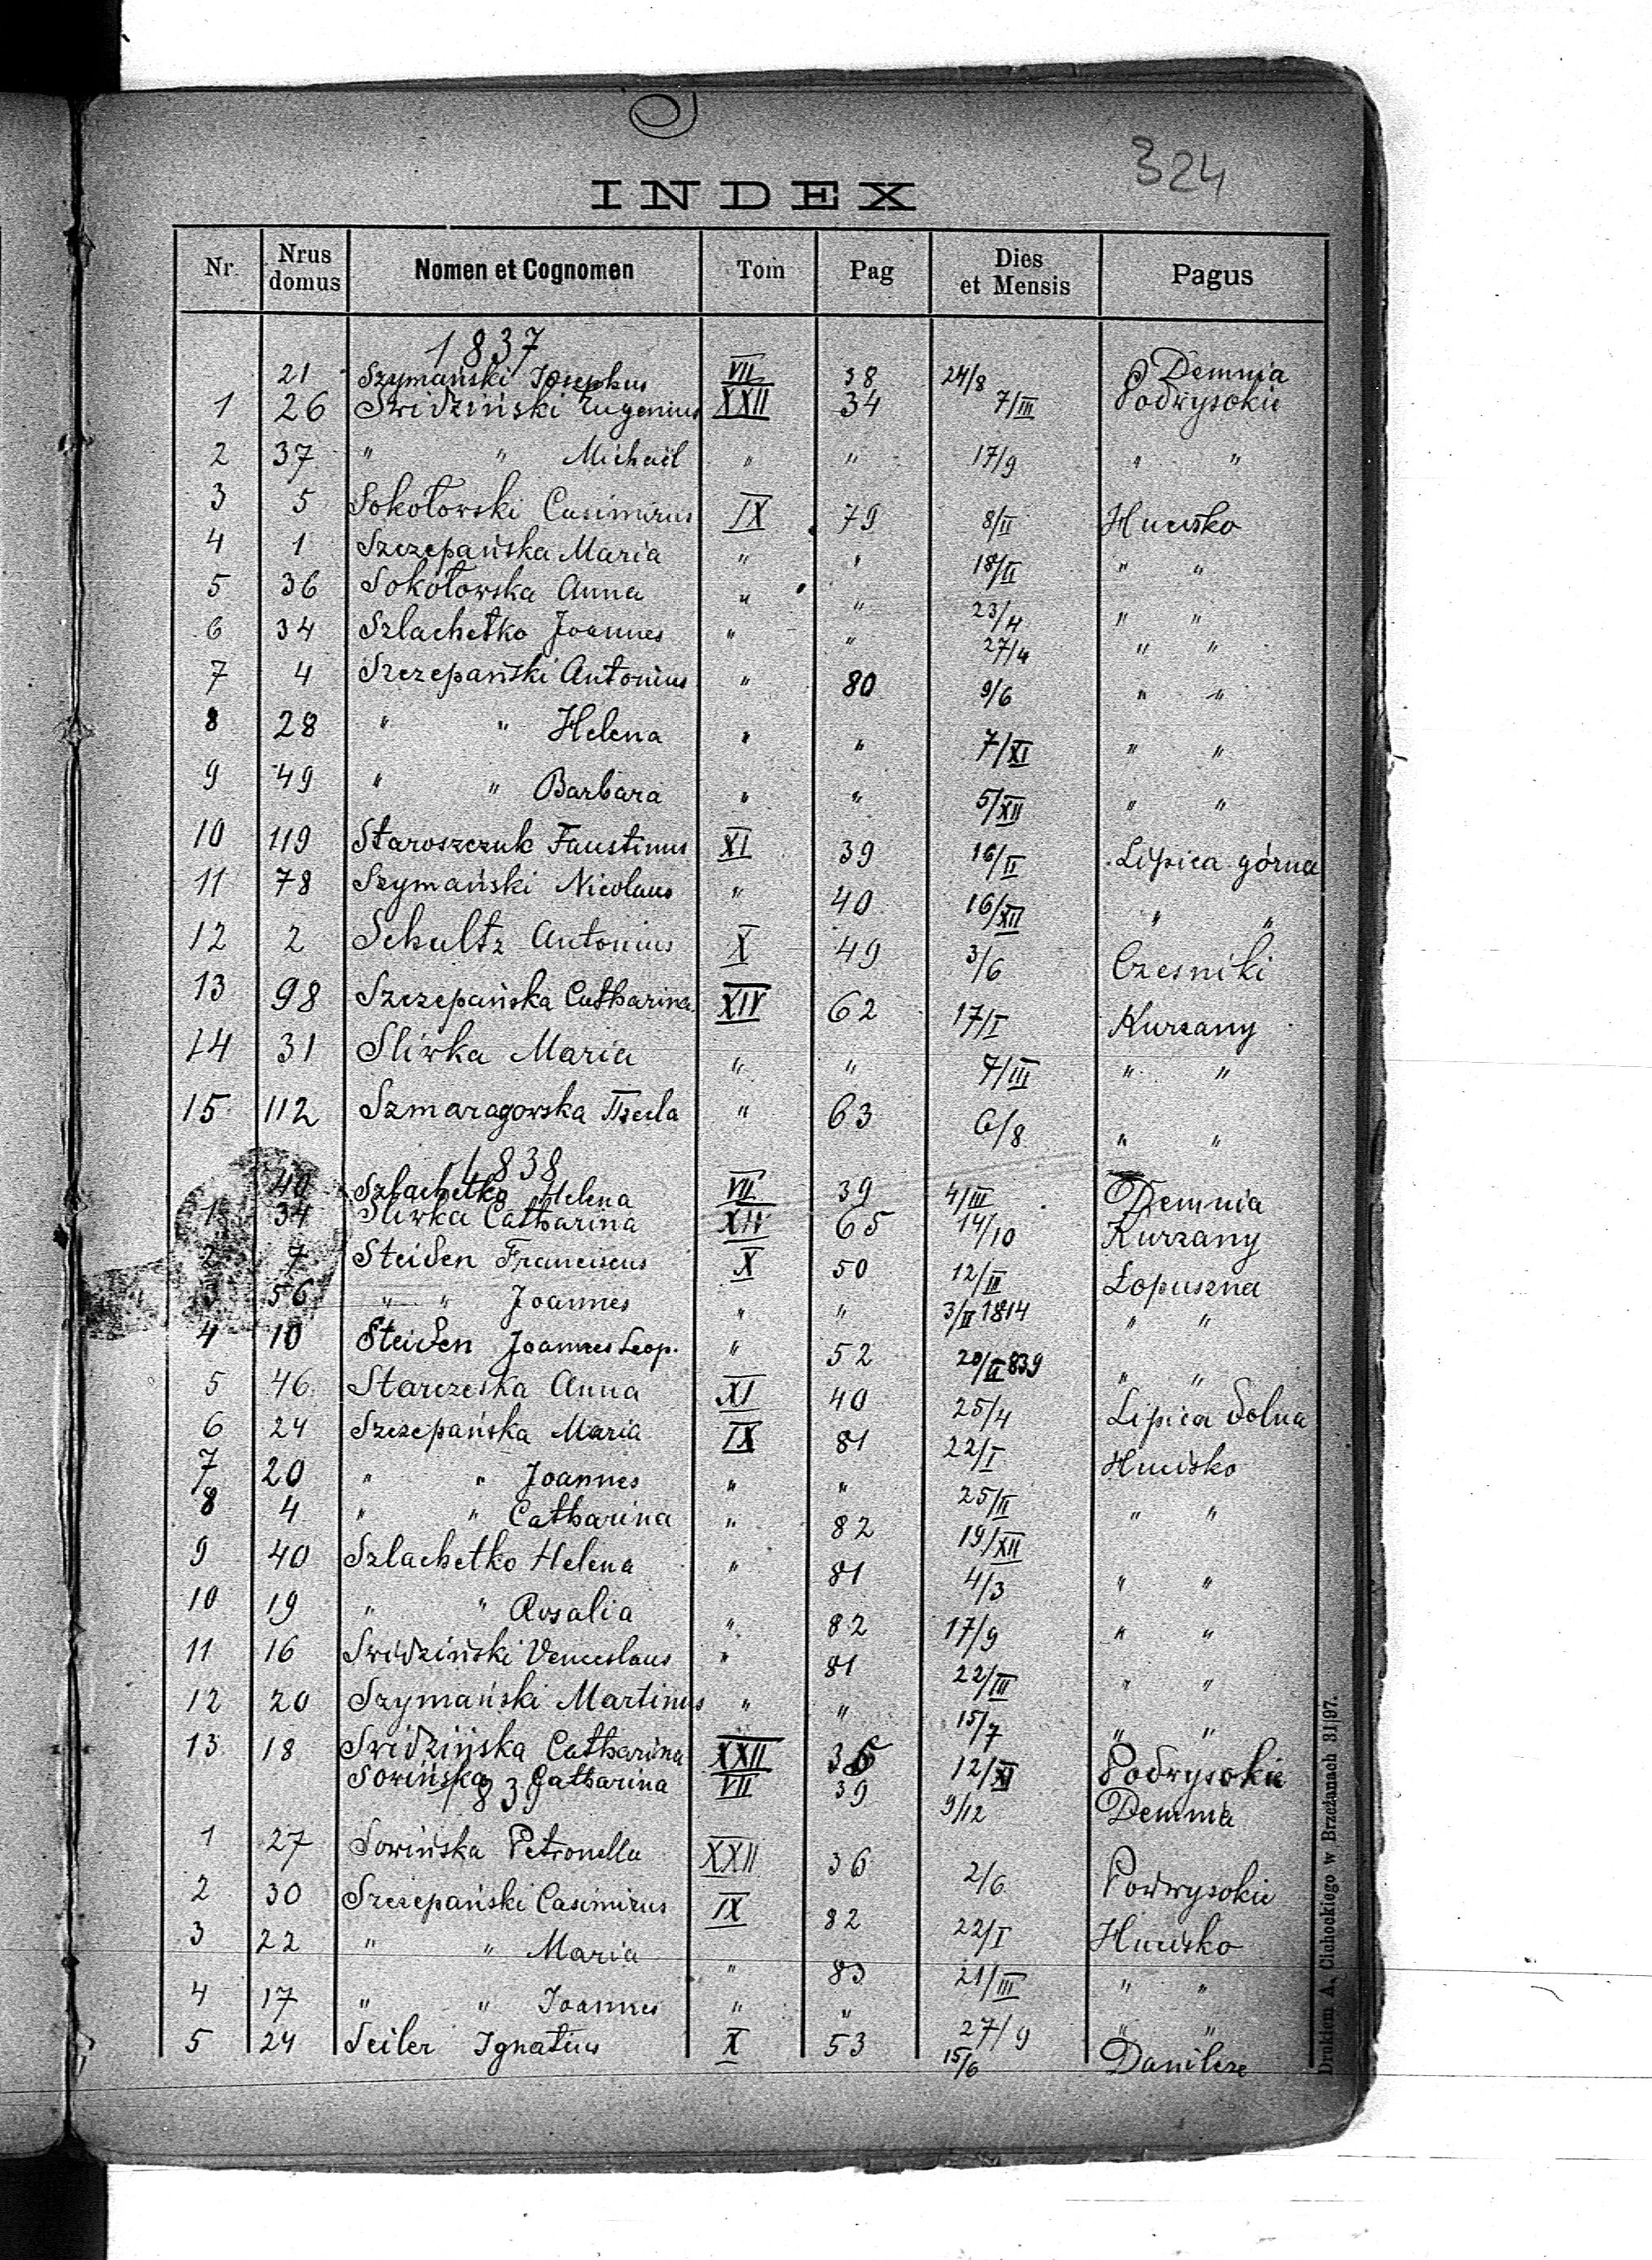 324
INDEX
Nr Nrus domus Nomen et Cognomen Tom Pag Dies et Mensis Pagus
1837
21 Szymański Josephus VII 38 24/8 Demnia
1 26 Swidziński Eugenius XXII 34 7/III Podwysokie
2 37 " " Michaël " " 17/9 " "
3 5 Sokołowski Casimirus IX 79 8/II Hucisko
4 1 Szczepańska Maria " " 18/II " "
5 36 Sokołowska Anna " " 23/4 " "
6 34 Szlachetko Joannes " " 27/4 " "
7 4 Szczepański Antonius " 80 9/6 " "
8 28 " " Helena " " 7/XI " "
9 49 " " Barbara " " 5/XII " "
10 119 Staroszczuk Faustinus XI 39 16/II Lipica górna
11 78 Szymański Nicolaus " 40 16/XII " "
12 2 Schultz Antonius X 49 3/6 Czesniki
13 98 Szczepańska Catharina XIV 62 17/I Kurzany
14 31 Sliwka Maria " " 7/III " "
15 112 Szmaragowska " 63 6/8 " "
1838
40 Szlachetko Helena VII 39 4/III Demnia
1 34 Sliwka Catharina XIV 65 14/10 Kurzany
2 7 Steiden Franciscus X 50 12/II Łopuszna
3 56 " " Joannes " " 3/II 1814 " "
4 10 Steiden Joannes Leop. " 52 20/II 839 " "
5 46 Starczeska Anna XI 40 25/4 Lipica dolna
6 24 Szczepańska Maria IX 81 22/I Hucisko
7 20 " " Joannes " " 25/II " "
8 4 " " Catharina " 82 19/XII
9 40 Szlachetko Helena " 81 4/3 " "
10 19 " " Rosalia " 82 17/9 " "
11 16 Swidziński Venceslaus " 81 22/III " "
12 20 Szymański Martinus " " 15/7 " "
13 18 Swidzińska Catharina XXII 35 12/XI Podwysokie
Sowińska Catharina VII 39 9/12 Demnia
1839
1 27 Sowińska Petronella XXII 36 2/6 Podwysokie
2 30 Szczepański Casimirus IX 82 22/I Hucisko
3 22 " " Maria " 83 21/III " "
4 17 " " Joannes " " 27/9 " "
5 24 Seiler Ignatius X 53 15/6 Danilcze
Drukiem A. Cichockiego w Brzeżanach 31|97.